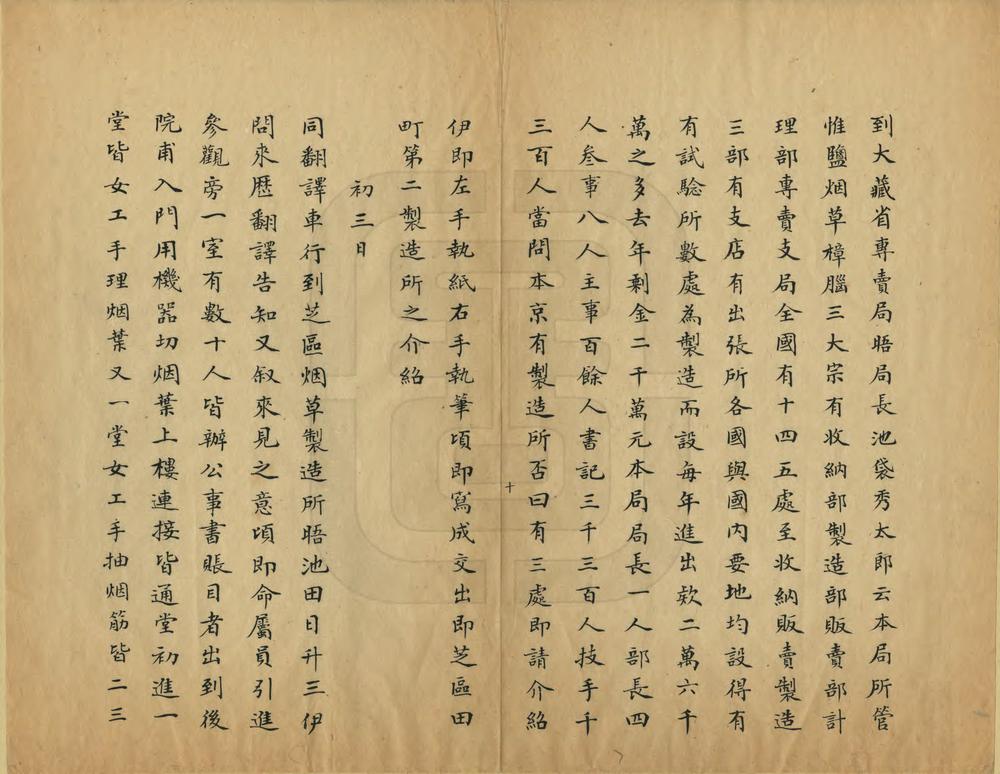 到大藏省專賣局晤局長池袋秀太郎云本局所管
惟鹽烟草樟腦三大宗有收納部製造部販賣部計
理部專賣支局全國有十四五處至收納販賣製造
三部有支店有出張所各國與國内要地均設得有
有試驗所數處為製造而設每年進出欵二萬六千
萬之多去年剩金二千萬元本局局長一人部長四
人叅事八人主事百餘人書記三千三百人技手千
三百人當問本京有製造所否曰有三處即請介紹
十
伊即左手執紙右手執筆頃即寫成交出即芝區田
町第二製造所之介紹
初三日
同翻譯車行到芝區烟草製造所晤池田日升三伊
問來歷翻譯告知又叙來見之意頃即命屬員引進
參觀旁一室有數十人皆辦公事書賬目者出到後
院甫入門用機器切烟葉上樓連接皆通堂初進一
堂皆女工手理烟葉又一堂女工手抽烟筋皆二三